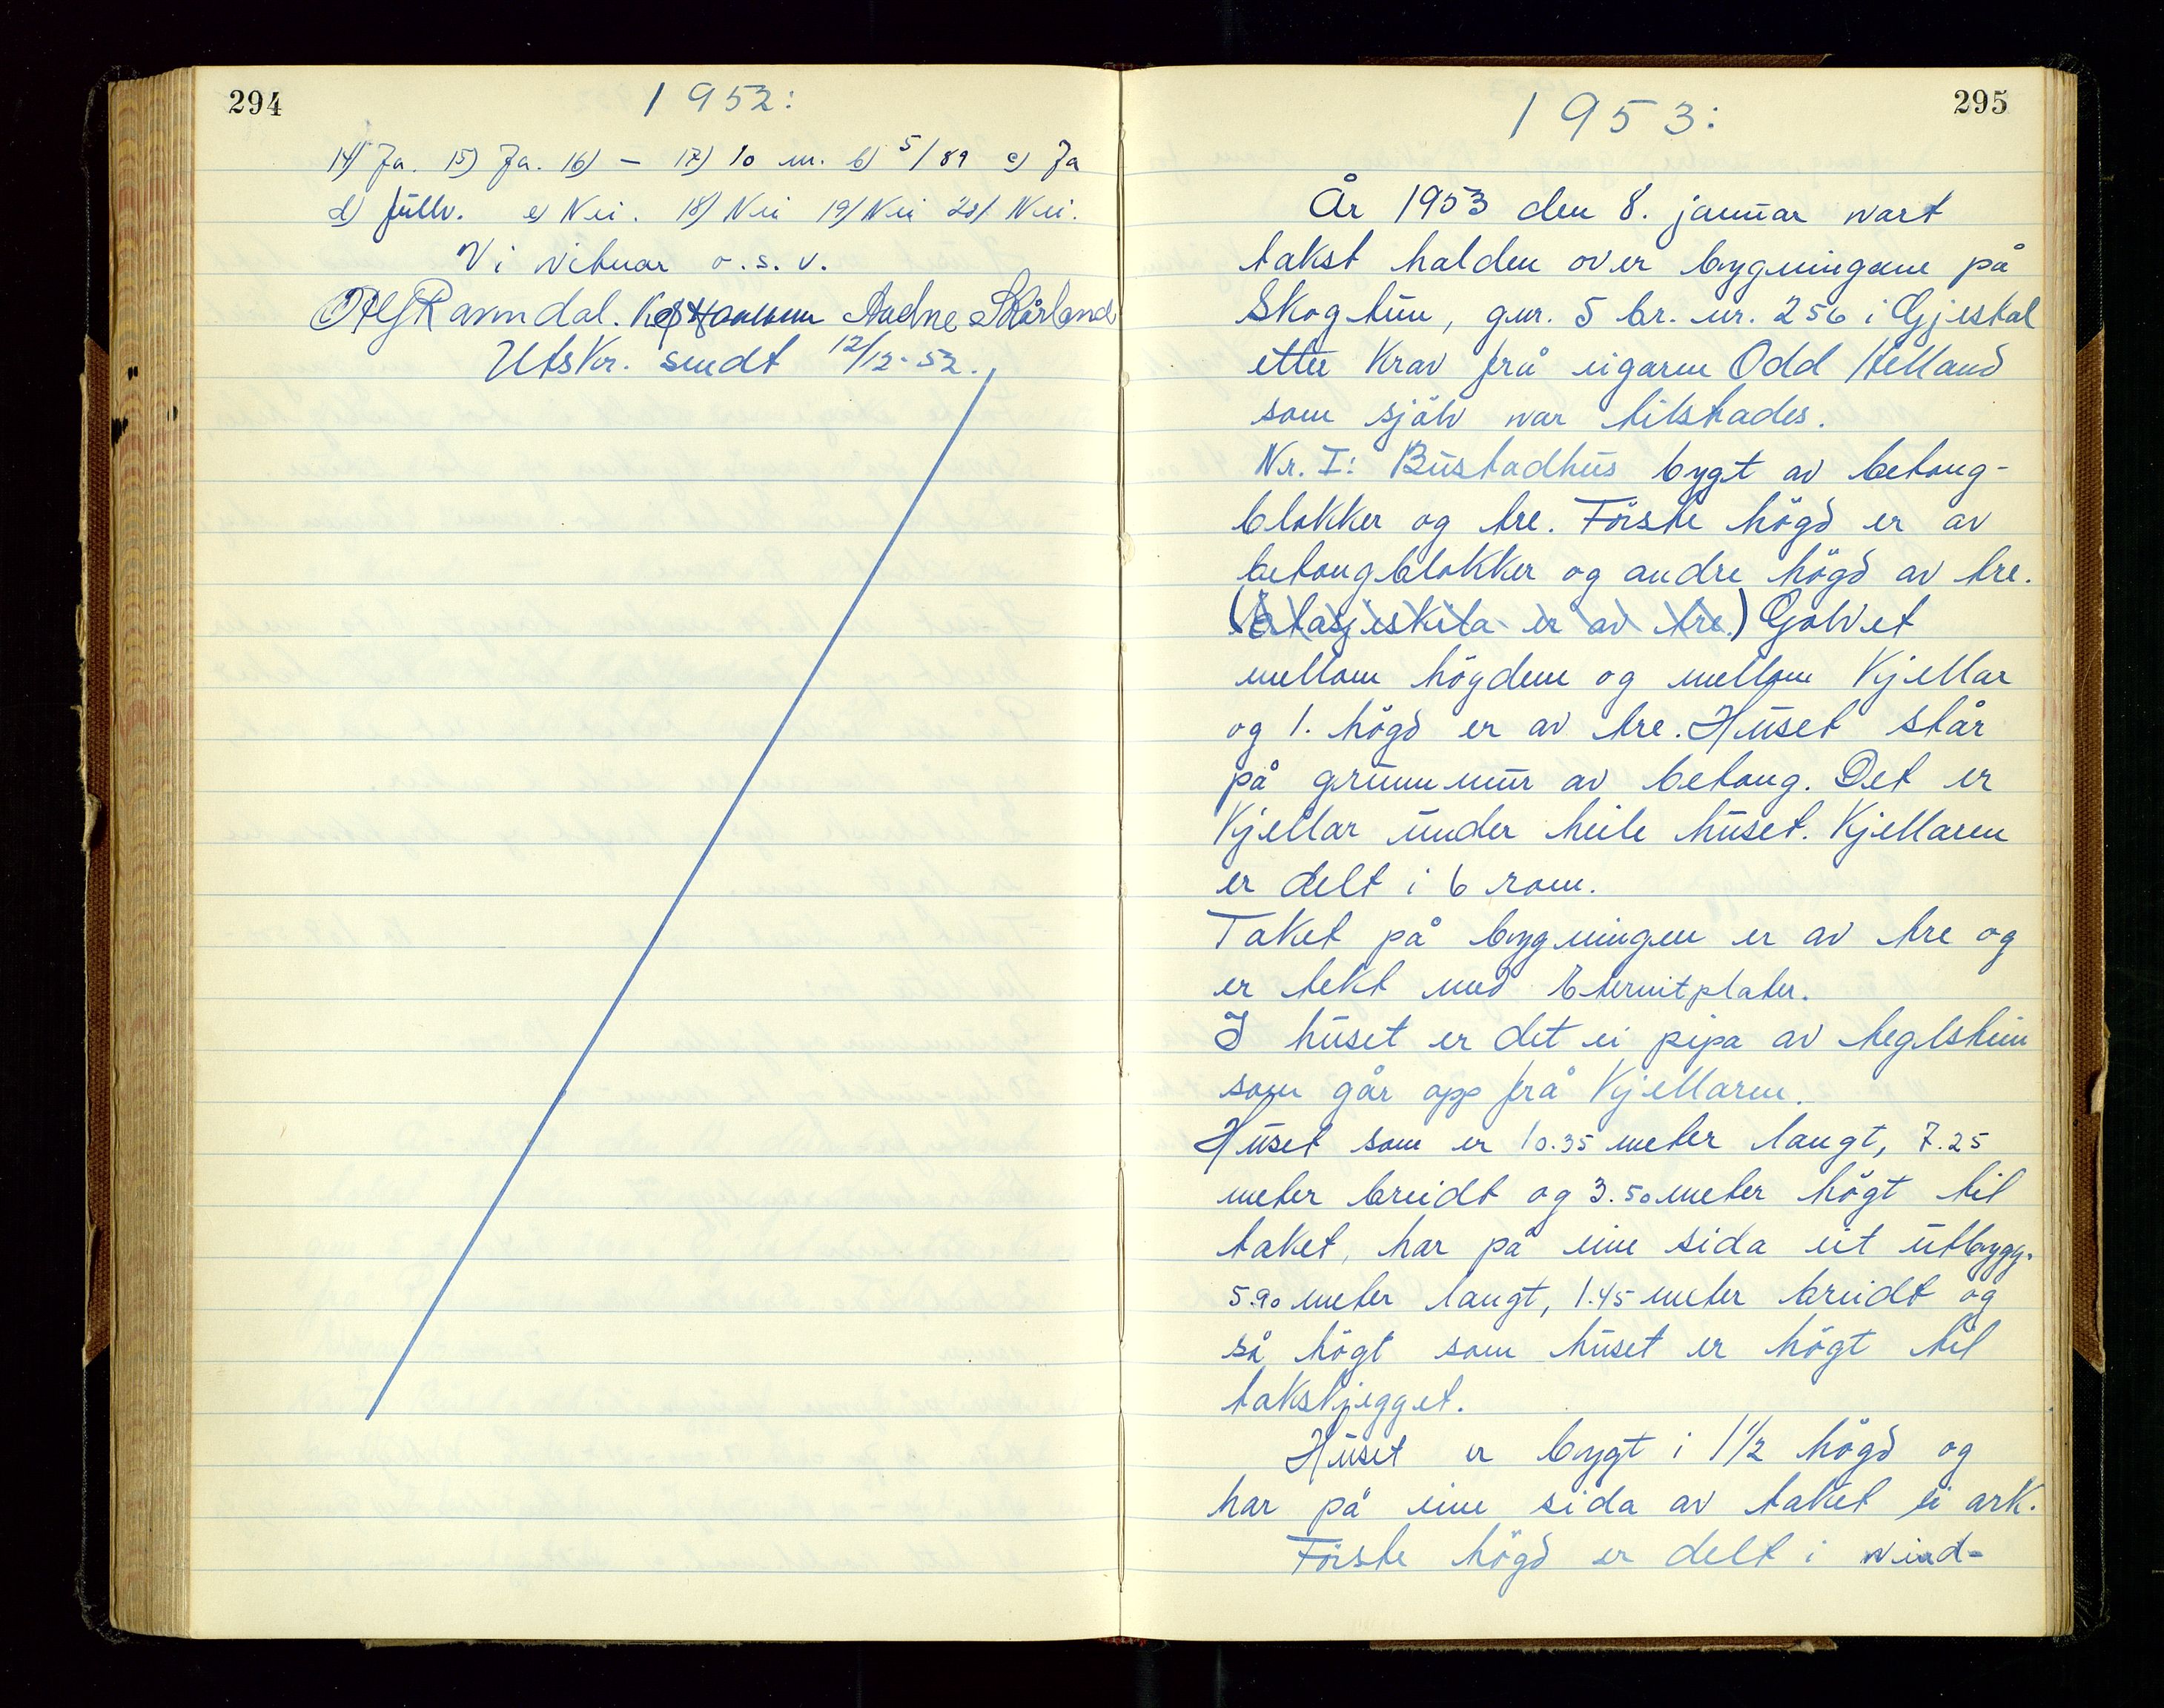 294
1952:
14) Ja. 15) Ja. 16) — 17) 10 m. b) 5/89 c) Ja
d) fullv. e) Nei. 18) Nei 19) Nei 20) Nei.
Vi vitnar o.s.v.
Ravndal. Aadne Skårland
Utskr. sendt 12/12-52.
295
1953:
År 1953 den 8. januar vart
takst halden over bygningane på
Skogtun, gnr. 5 br. nr. 256 i Gjestal
etter krav frå eigaren Odd Helland
som sjölv var tilstades.
Nr. I: Bustadhus bygt av betong-
blokker og tre. Förste högd er av
betongblokker og andre högd av tre.
(Etasjeskila er av tre.) Golvet
mellom högdene og mellom kjellar
og 1. högd er av tre. Huset står
på grunnmur av betong. Det er
kjellar under heile huset. Kjellaren
er delt i 6 rom.
Taket på bygningen er av tre og
er tekt med Eternitplater.
I huset er det ei pipa av teglstein
som går opp frå kjellaren.
Huset som er 10.35 meter langt, 7.25
meter breidt og 3.50 meter högt til
taket, har på eine sida eit utbygg.
5.90 meter langt, 1.45 meter breidt og
så högt som huset er högt til
takskjegget.
Huset er bygt i 1 1/2 högd og
har på eine sida av taket ei ark.
Förste högd er delt i vind-